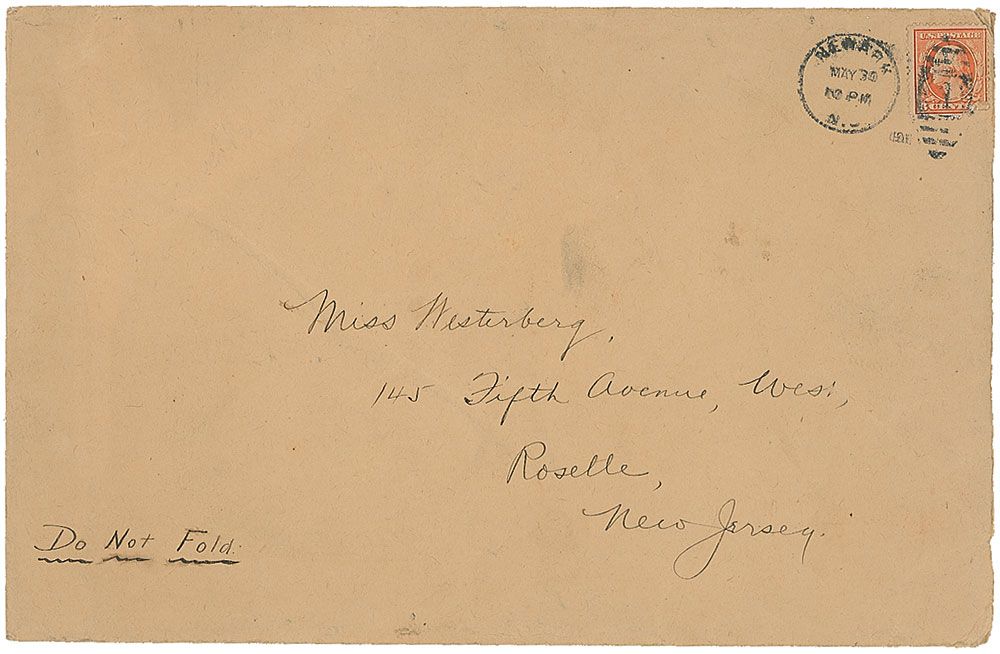 NEWARK
MAY 30
PM
N.J.
U.S. POSTAGE
CENTS
Miss Westerberg,
145 Fifth Avenue, West,
Roselle,
New Jersey.
Do Not Fold.